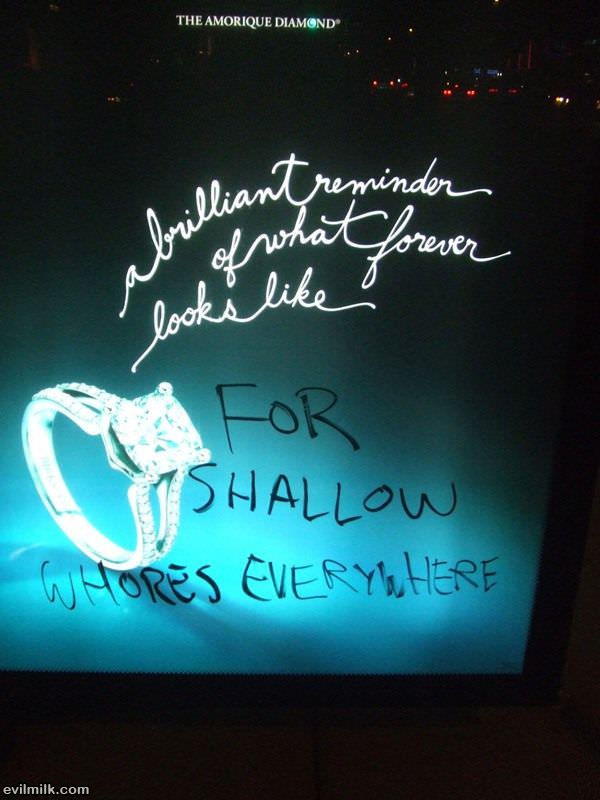 THE AMORIQUE DIAMOND®
a brilliant reminder
of what forever
looks like
FOR
SHALLOW
WHORES EVERYWHERE
evilmilk.com